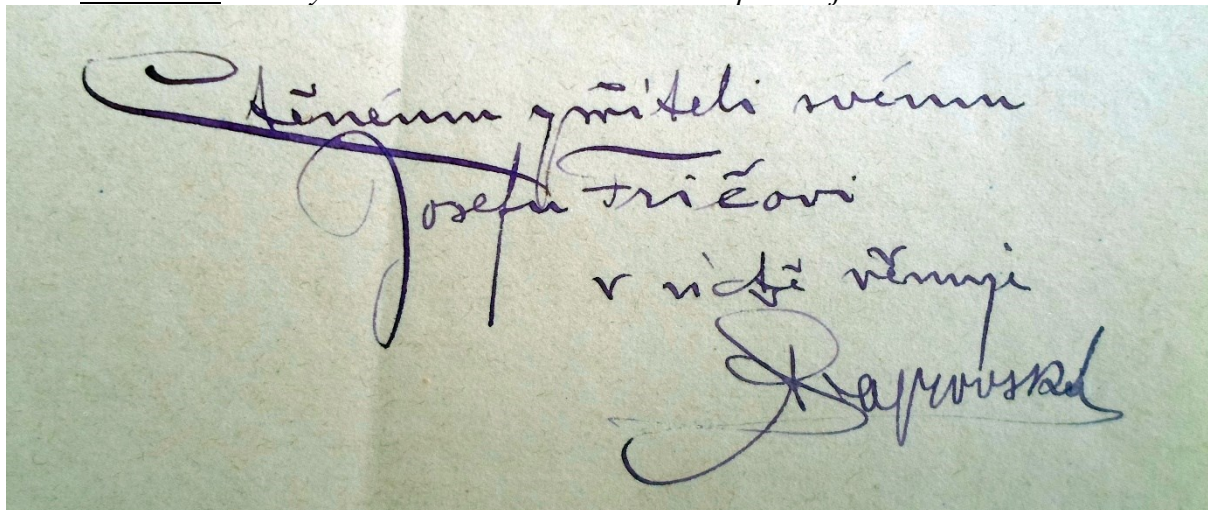 Ctěnému příteli svému
Josefu Fričovi
v úctě věnuje